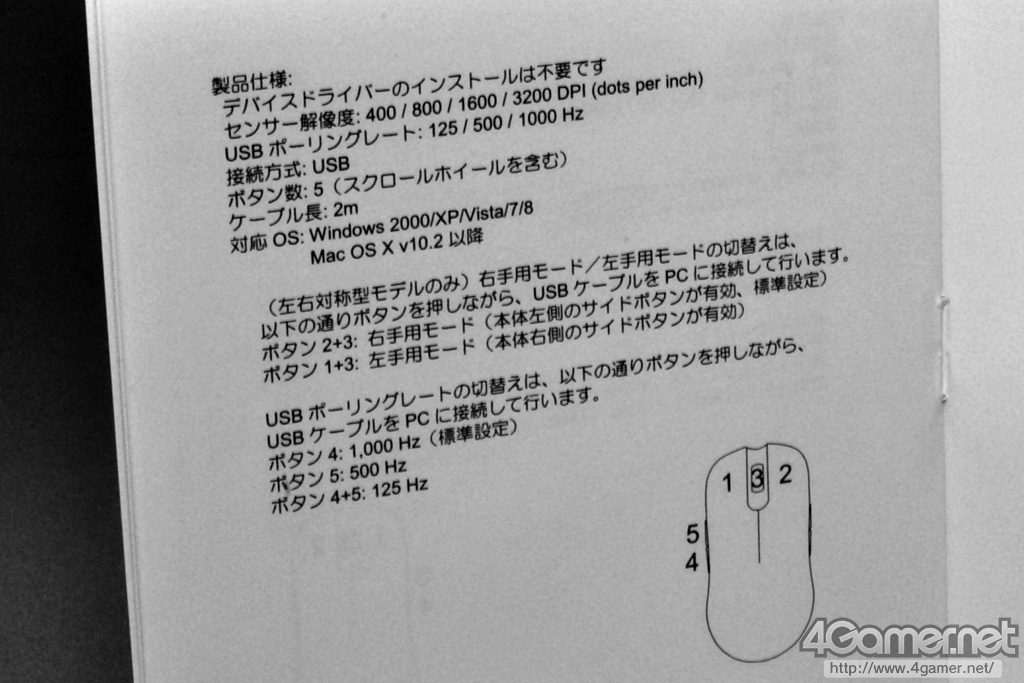 製品仕様:
デバイスドライバーのインストールは不要です
センサー解像度: 400 / 800 / 1600 / 3200 DPI (dots per inch)
USB ポーリングレート: 125 / 500 / 1000 Hz
接続方式: USB
ボタン数: 5（スクロールホイールを含む）
ケーブル長: 2m
対応 OS: Windows 2000/XP/Vista/7/8
Mac OS X v10.2 以降
（左右対称型モデルのみ）右手用モード／左手用モードの切替えは、
以下の通りボタンを押しながら、USB ケーブルを PC に接続して行います。
ボタン 2+3: 右手用モード（本体左側のサイドボタンが有効、標準設定）
ボタン 1+3: 左手用モード（本体右側のサイドボタンが有効）
USB ポーリングレートの切替えは、以下の通りボタンを押しながら、
USB ケーブルを PC に接続して行います。
ボタン 4: 1,000 Hz（標準設定）
ボタン 5: 500 Hz
ボタン 4+5: 125 Hz
1 3 2
5
4
4Gamer.net
http://www.4gamer.net/